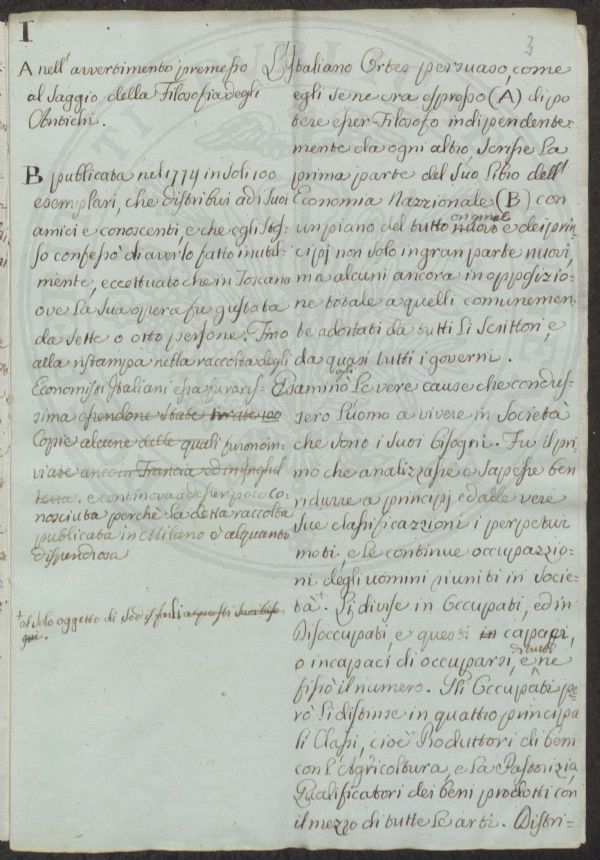 I
3
A nell'avvertimento premesso
al Saggio della Filosofia degli
Antichi.
B publicata nel 1774 in soli 100
esemplari, che distribuì a di suoi
amici e conoscenti, e che egli stes-
so confessò di averlo fatto inutil-
mente, eccettuato che in Toscana
ove la sua opera fu gustata
da sette o otto persone. Fino
alla ristampa nella raccolta degli
Economisti Italiani essa fu raris-
sima essendone state tirate 100
Copie alcune delle quali furono in-
viate anco in Francia ed in Inghil
terra. e continova ad esser poco co-
nosciuta perchè la detta raccolta
publicata in Milano è alquanto
dispendiosa
+ al solo oggetto di sodisfarli a questi suoi biso
gni.
L'Italiano Ortes persuaso, come
egli se ne era espresso (A) di po
tere esser Filosofo indipendente-
mente da ogni altro scrisse la
prima parte del suo libro dell'
Economia Nazzionale (B) con
un piano del tutto nuovo e dei prin-
originale
cipj non solo in gran parte nuovi
ma alcuni ancora in opposizio-
ne totale a quelli comunemen-
te adottati da tutti li scrittori, e
da quasi tutti i governi.
Esaminò le vere cause che condus-
egli
sero l'uomo a vivere in Società
che sono i suoi bisogni. Fu il pri-
mo che analizzasse e sapesse ben
ridurre a principj ed alle vere
sue classificazzioni i perpetui
moti, e le continue occupazzio-
ni degli uomini riuniti in Socie-
tà +. Li divise in Occupati, ed in
Disoccupati, e questi in capaci,
o incapaci di occuparsi, e ne
di tutti
fissò il numero. Gli Occupati pe-
rò li distinse in quattro principa
li Classi, cioè Produttori di beni
con l'Agricoltura, e la Pastorizia,
Qualificatori dei beni prodotti con
il mezzo di tutte le arti. Distri-